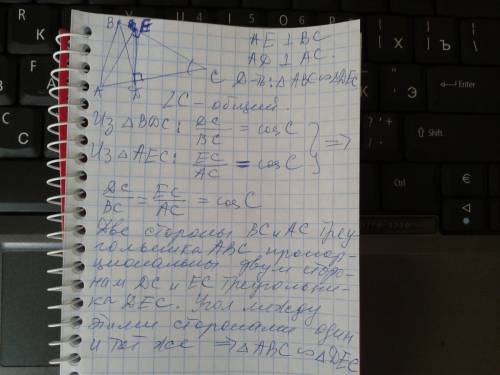 B E
AE ⊥ BC
AD ⊥ AC.
A C
Д-ть: △ABC ∾ △DEC
∠C – общий.
Из △BDC: DC/BC = cos C
Из △AEC: EC/AC = cos C } ⇒
DC/BC = EC/AC = cos C
Две стороны BC и AC треу
гольника ABC пропор-
циональны двум сторо-
нам DC и EC треугольни-
ка DEC. Угол между
этими сторонами один
и тот же ⇒ △ABC ∾ △DEC
Shift